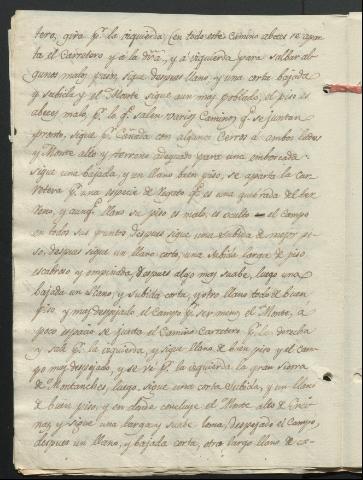 tero, gira p.r la izquierda, (en todo este Camino abeces se apar
ta el Carretero y á la dra, y á izquierda para salbar al
gunos malos pasos, sigue despues llano, y una corta bajada
y subida y el Monte sigue aun mas poblado, el piso es
abeces malo, p.r lo q.e salen varios Caminos q.e se juntan
pronto, sigue p.r Cañada con algunos Cerros á ambos lados
y Monte alto y terreno adequado para una emboscada
sigue una bajada, y un llano buen piso, se aparta la Car
retera p.r una especie de q.e es una quebrada del ter
reno, y aunq.e llano su piso es malo, es oculto el campo
en todos sus puntos despues sigue una subida de mejor pi
so, despues sigue un llano corto, una subida larga de piso
escabroso y empinada, despues algo mas suabe, luego una
bajada un llano, y subida corta, y otro llano todo de buen
piso, y mas despejado el campo p.r ser menos el Monte, á
poco espacio se junta el Camino Carretero p.r la derecha
y sale p.r la izquierda, y sigue llano de buen piso y el cam
po mas despejado, y se vé p.r la izquierda la gran sierra
de Montanches, luego sigue una corta subida, y un llano
de buen piso, y en donde concluye el Monte alto de Enci
nas, y sigue una larga y suabe loma, despejado el Campo,
despues un llano, y bajada corta, otro largo llano de ca-